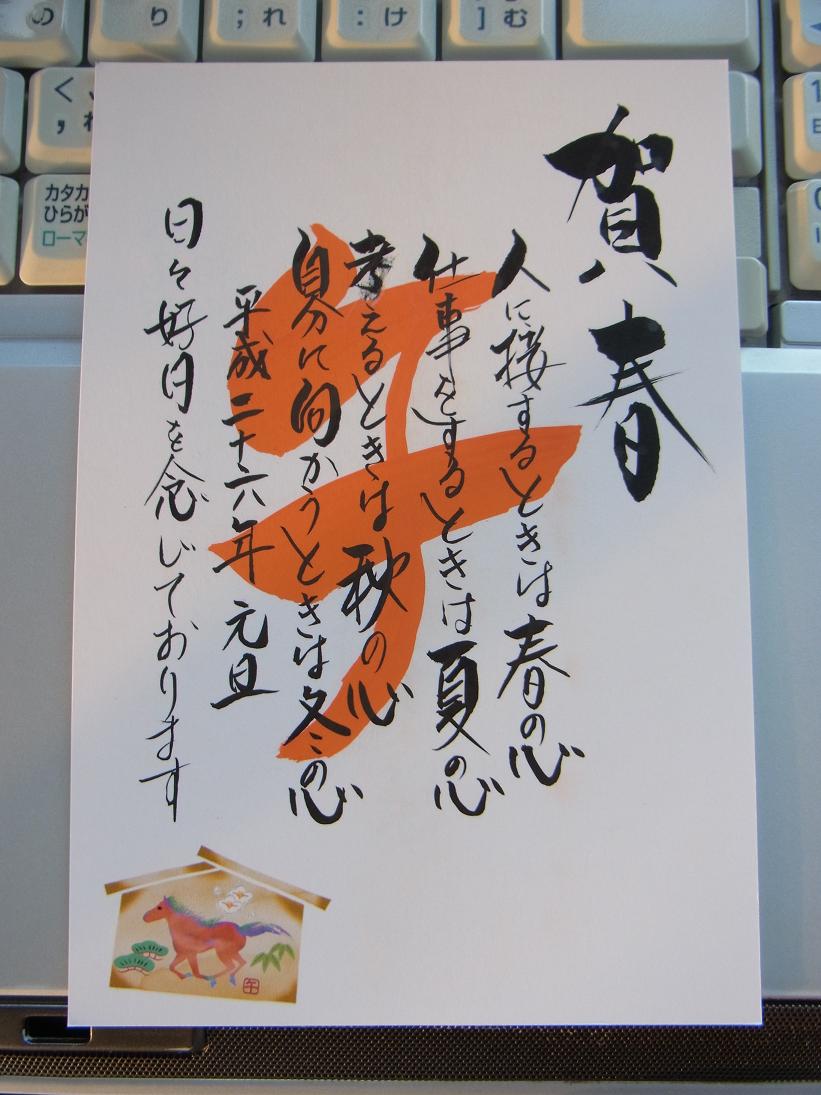 賀春
人に接するときは春の心
仕事をするときは夏の心
考えるときは秋の心
自分に向かうときは冬の心
平成二十六年 元旦
日々好日を念じております
午
午
の
り
; れ
: け
] む
く
, ね
カタカ
ひらが
ローマ